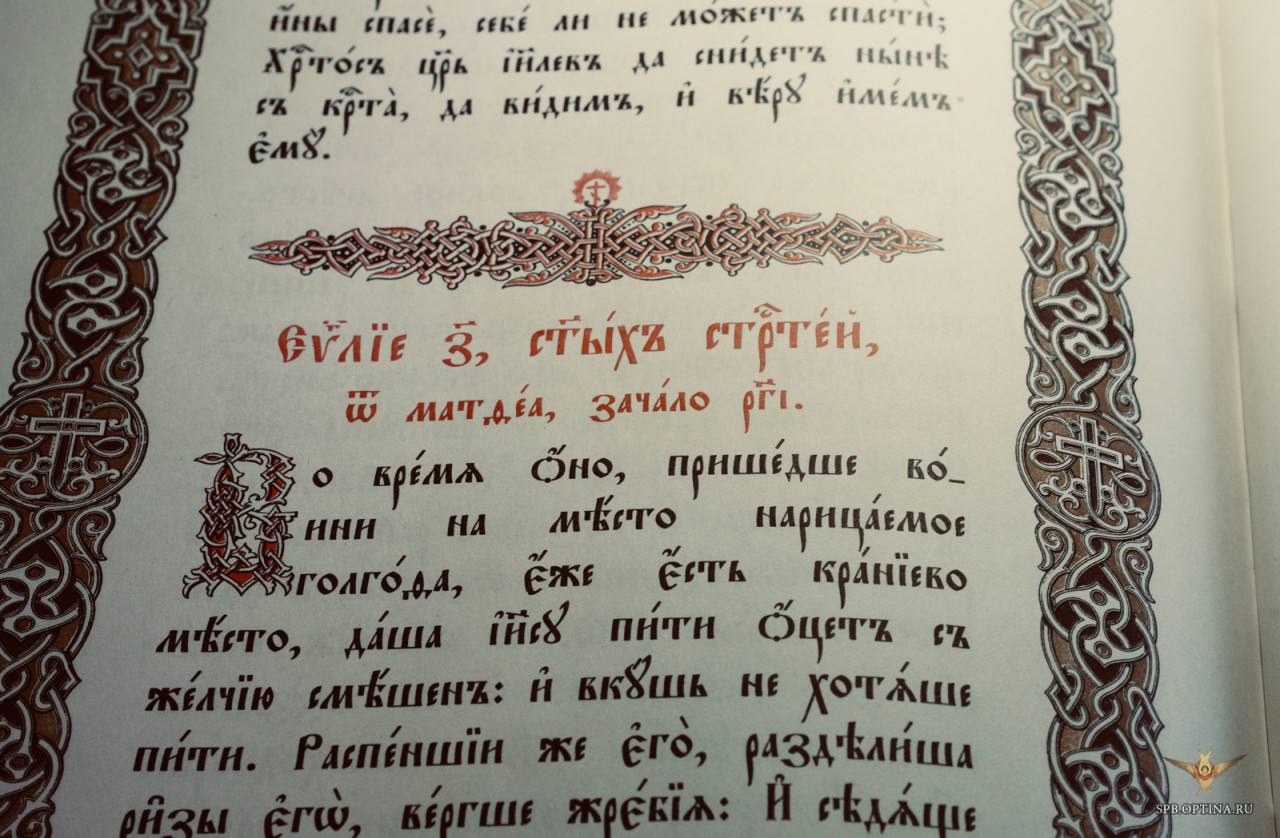 и҆́ны спасѐ, себе́ ли не мо́жетъ спастѝ;
Хрⷭ҇то́съ цр҃ь і҆и҃левъ да сни́детъ ны́нѣ
съ крⷭ҇та̀, да ви́димъ, и҆ вѣ́рꙋ и҆́мемъ
є҆мꙋ̀.
Є҆ѵⷢ҇лїе з҃, ст҃ы́хъ стрⷭ҇те́й,
ѿ матѳе́а, зача́ло рг҃і.
Во вре́мѧ ѻ҆́но, прише́дше во́_
ини на мѣ́сто нарица́емое
голго́ѳа, є҆́же є҆́сть кра́нїево
мѣ́сто, да́ша і҆и҃сꙋ пи́ти ѻ҆́цетъ съ
же́лчїю смѣ́шенъ: и҆ вкꙋ́шь не хотѧ́ше
пи́ти. Распе́ншїи же є҆го̀, раздѣли́ша
ри̑зы є҆гѡ̀, ве́ргше жре́бїѧ: И҆ сѣдѧ́ще
SPB.OPTINA.RU